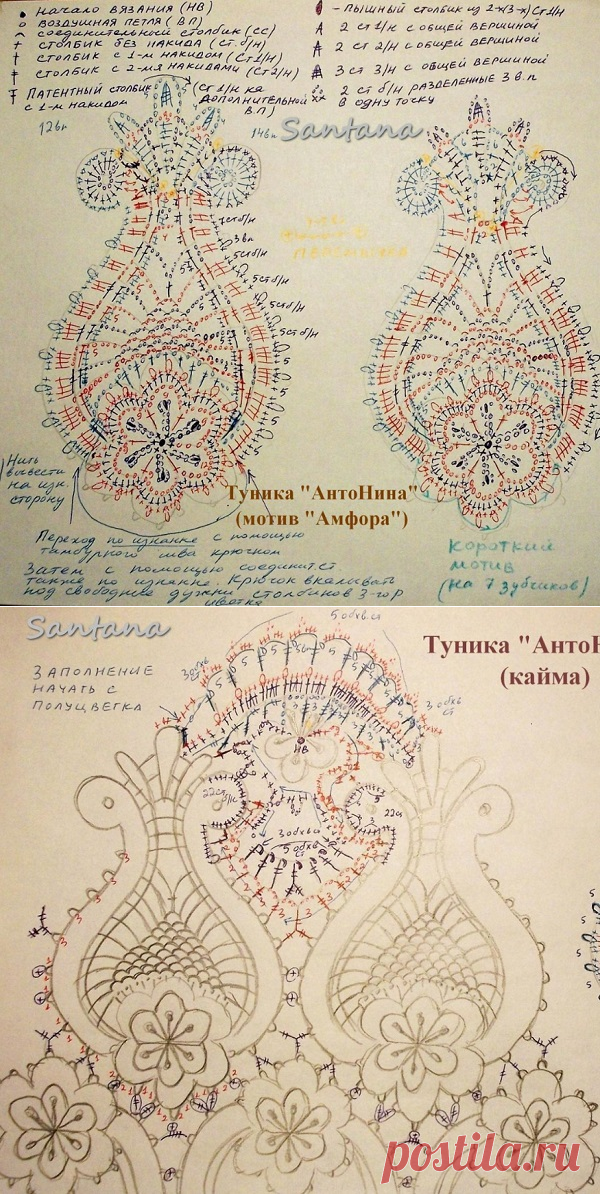 начало вязания (НВ)
воздушная петля (ВП)
соединительный столбик (СС)
столбик без накида (Ст.б/н)
столбик с 1-м накидом (Ст1/н)
столбик с 2-мя накидами (Ст2/н)
Патентный столбик (Ст1/н на
с 1-м накидом дополнительной
в.п)
- пышный столбик из 2-х(3-х) Ст1/н
2 ст1/н с общей вершиной
2 ст 2/н с общей вершиной
3 ст 3/н с общей вершиной
2 ст б/н разделенные 3 в.п
в одну точку
12вп
14вп
Santana
7стб/н
3вп
5стб/н
5стб/н
5стб/н
5стб/н
Нить
вывести
на изн.
сторону
Туника "АнтоНина"
(мотив "Амфора")
Переход по изнанке с помощью
тамбурного шва крючком
Затем с помощью соединит.ст
также по изнанке. Крючок вкалывать
под свободные дужки столбиков 3-го р
цветка
короткий
мотив
(на 7 зубчиков)
Santana
Заполнение
начать с
полуцветка
Туника "АнтоН
(кайма)
5 обхв.ст
3 обхв
3 обхв
ст
НВ
22ст
б/н
22ст
3 обхв
5 обхв
ст
postila.ru